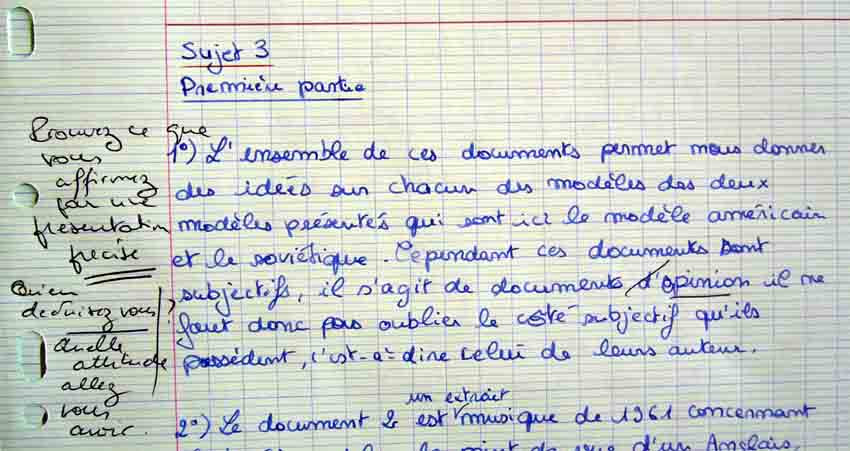 Sujet 3
Première partie
Prouvez ce que
vous
affirmez
par une
présentation
précise
Qu'en
déduisez vous
Quelle
attitude
allez
vous
avoir.
1°) L'ensemble de ces documents permet nous donner
des idées sur chacun des modèles des deux
modèles présentés qui sont ici le modèle américain
et le soviétique. Cependant ces documents sont
subjectifs, il s'agit de documents d'opinion il ne
faut donc pas oublier le côté subjectif qu'ils
possèdent, c'est-à-dire celui de leurs auteur.
un extrait
2°) Le document 2 est musique de 1961 concernant
point de vue d'un Anglais,